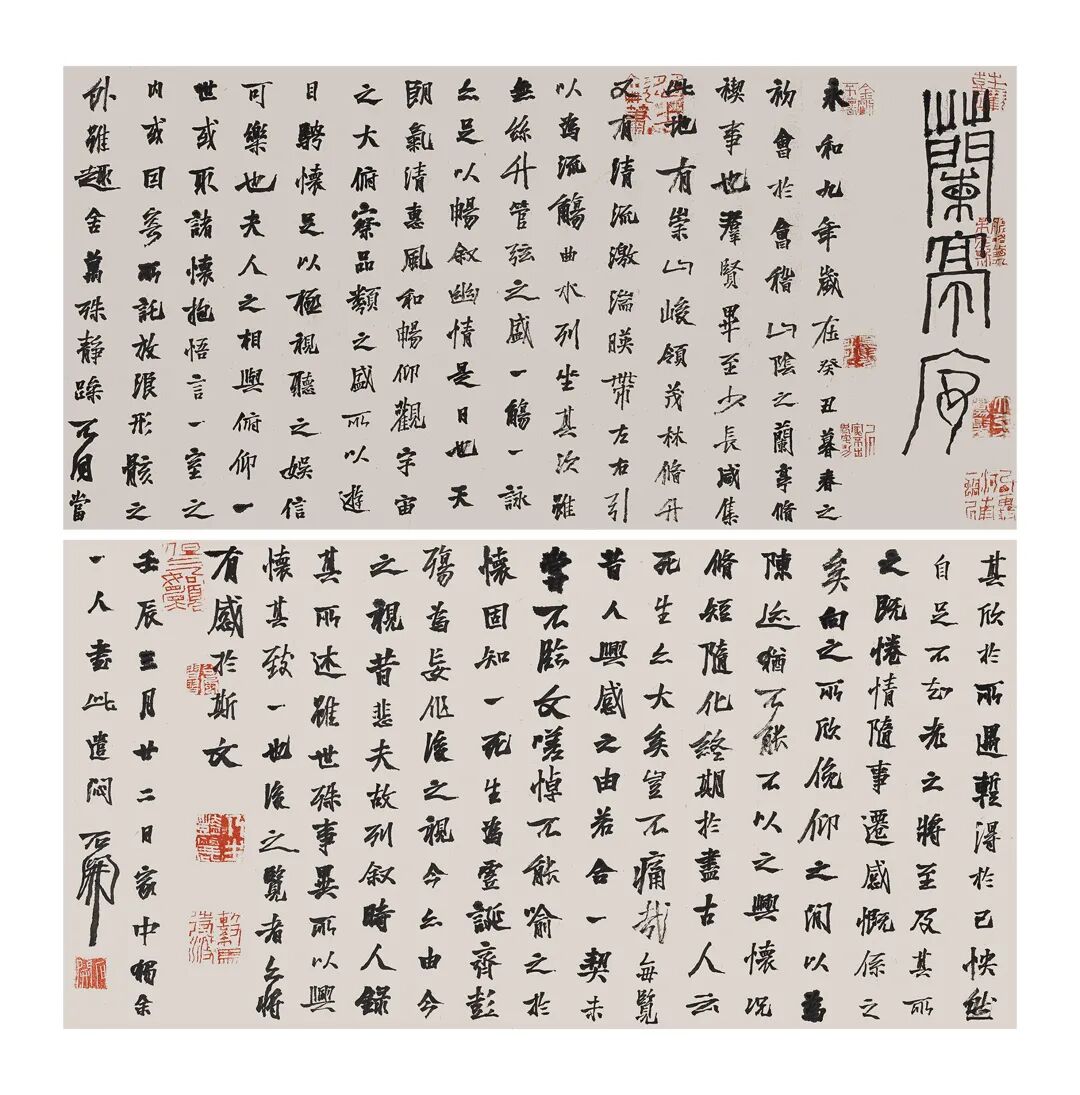 蘭亭序
永和九年歲在癸丑暮春之
初會於會稽山陰之蘭亭脩
禊事也羣賢畢至少長咸集
此地有崇山峻領茂林脩竹
又有清流激湍暎帶左右引
以為流觴曲水列坐其次雖
無絲竹管弦之盛一觴一詠
亦足以暢叙幽情是日也天
朗氣清惠風和暢仰觀宇宙
之大俯察品類之盛所以遊
目騁懷足以極視聽之娛信
可樂也夫人之相與俯仰一
世或取諸懷抱悟言一室之
內或因寄所託放浪形骸之
外雖趣舍萬殊靜躁不同當
其欣於所遇暫得於己怏然
自足不知老之將至及其所
之既惓情隨事遷感慨係之
矣向之所欣俛仰之閒以為
陳迹猶不能不以之興懷況
脩短隨化終期於盡古人云
死生亦大矣豈不痛哉每覽
昔人興感之由若合一契未
嘗不臨文嗟悼不能喻之於
懷固知一死生為虛誕齊彭
殤為妄作後之視今亦由今
之視昔悲夫故列叙時人錄
其所述雖世殊事異所以興
懷其致一也後之覽者亦將
有感於斯文
壬辰三月廿二日家中獨余
一人書此遣悶 石開